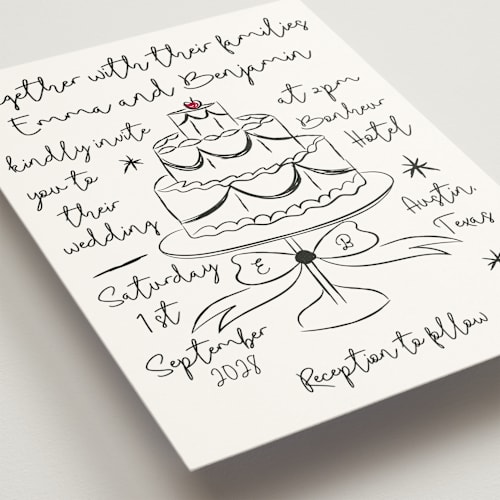 together with their families
Emma and Benjamin
kindly invite
you to
their
wedding
at 2pm
Bonheur
Hotel
Austin,
Texas
E B
Saturday
1st
September
2028
Reception to follow